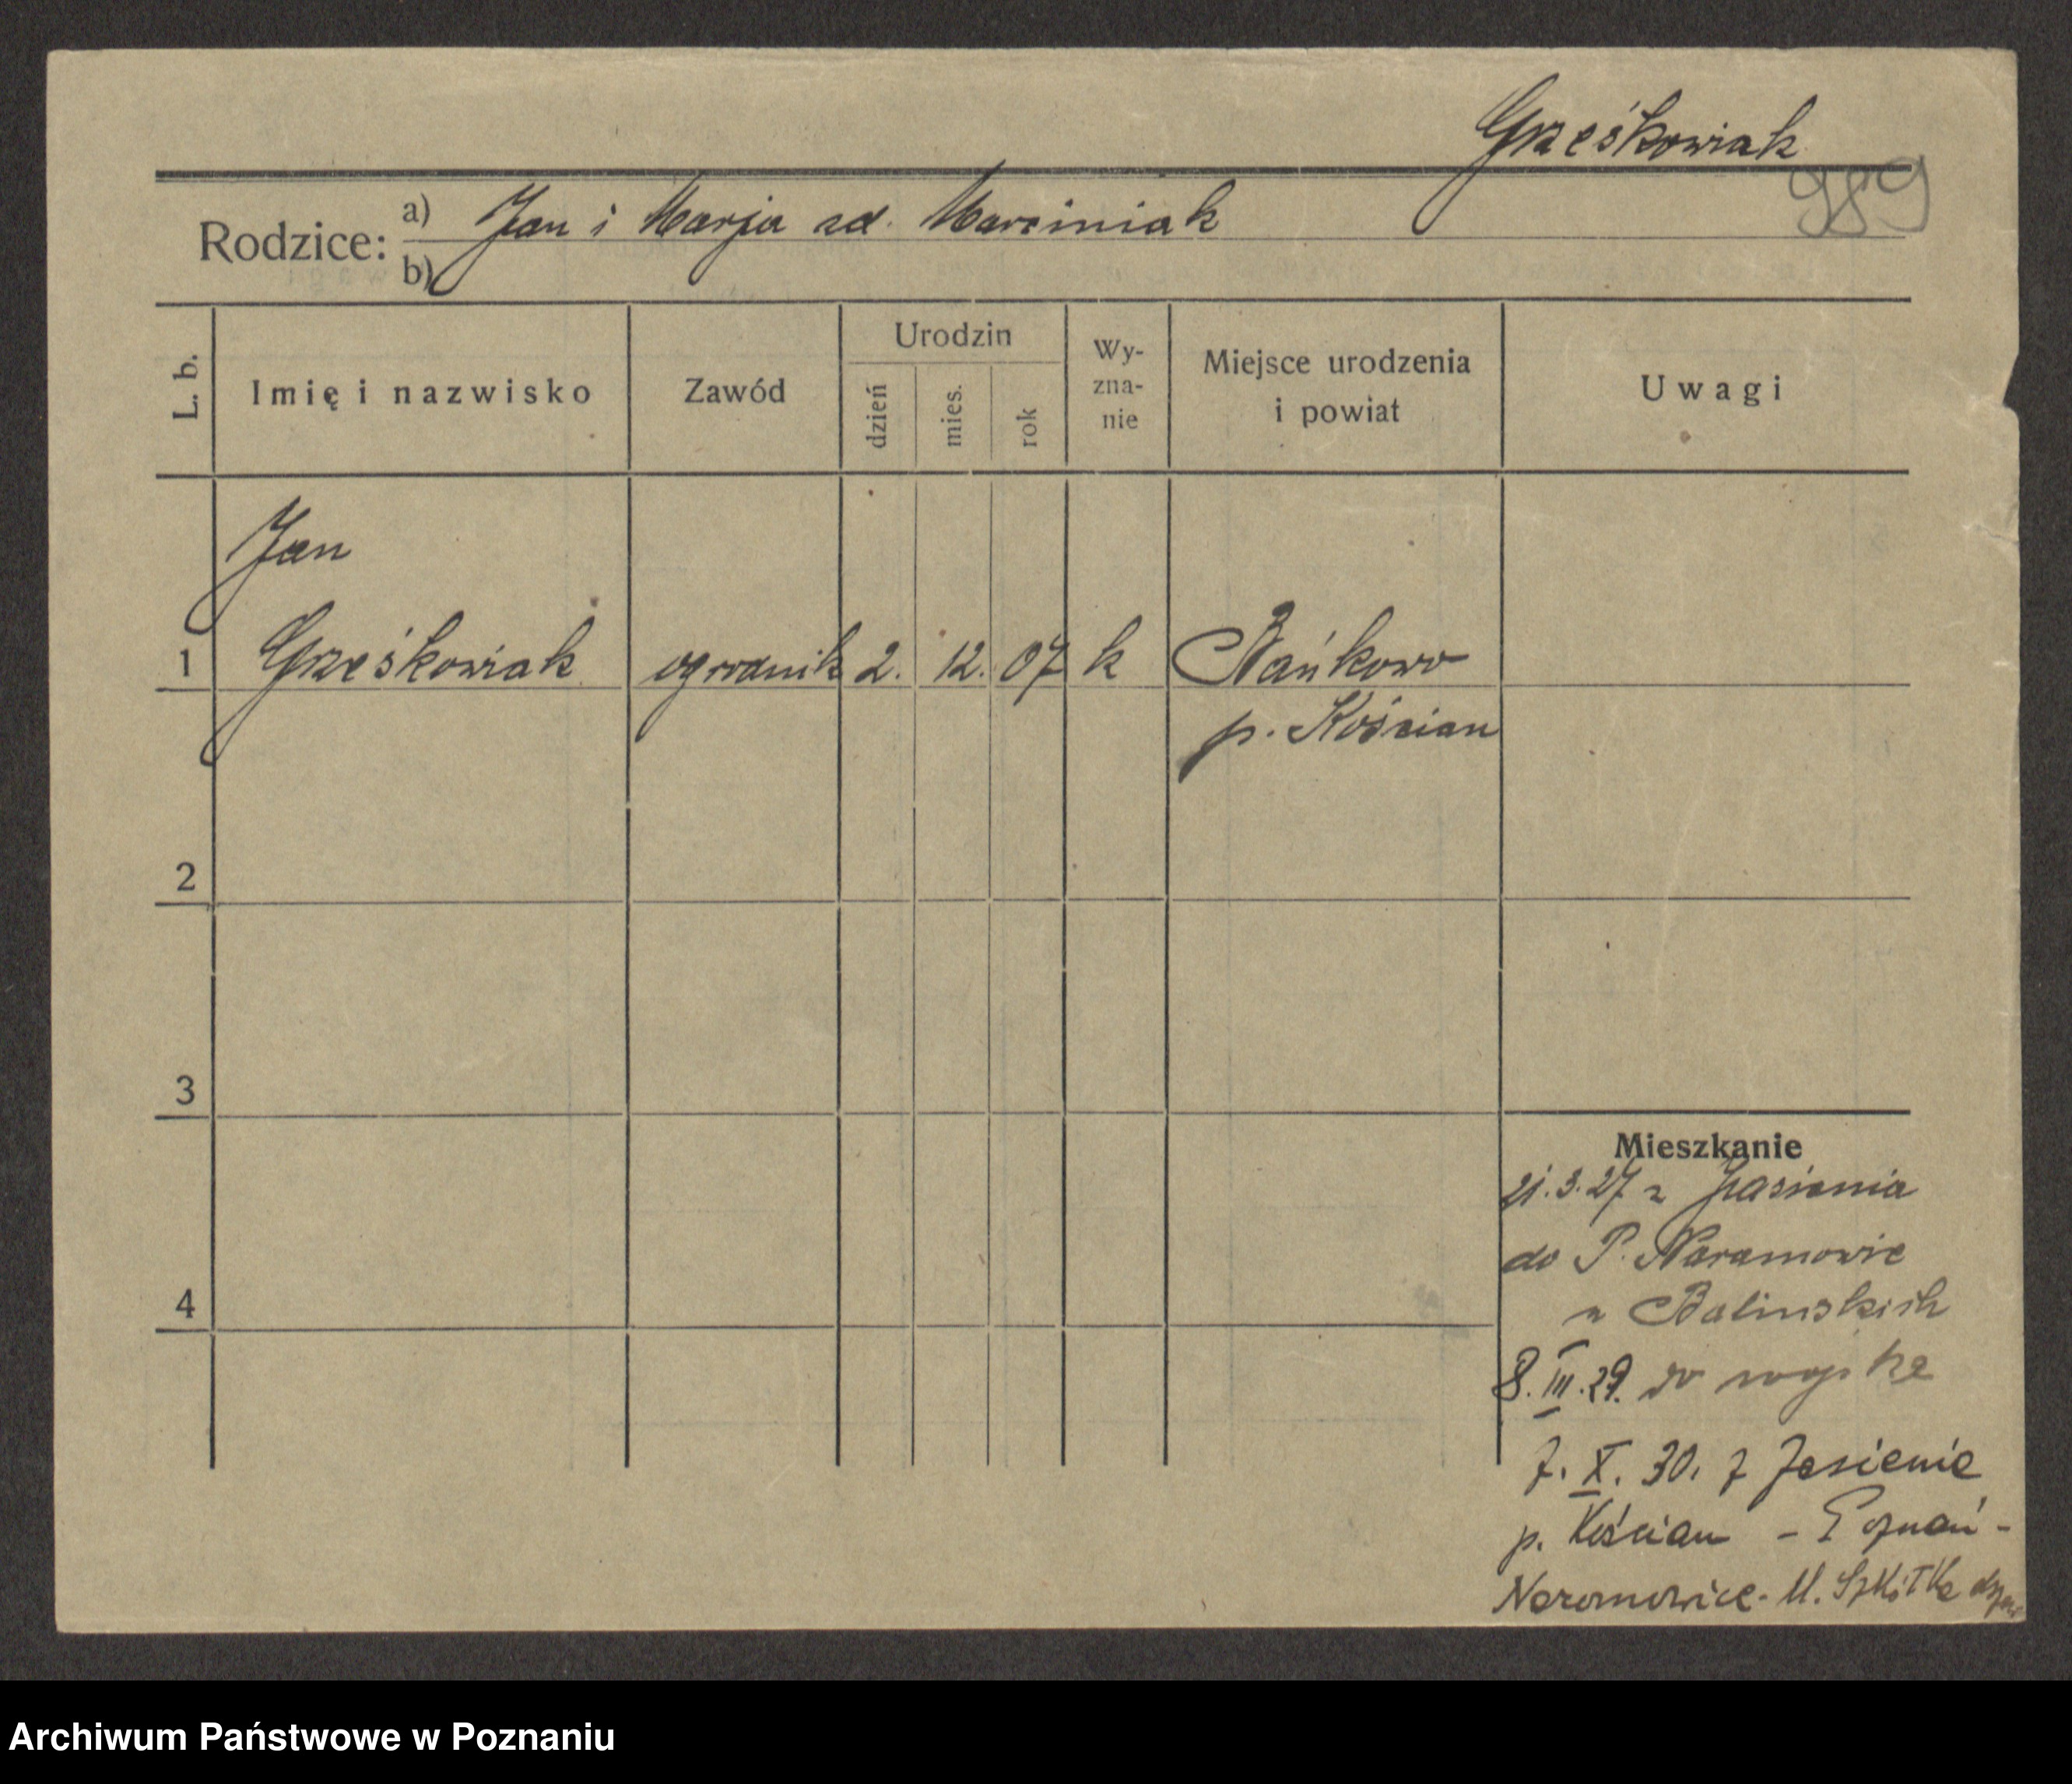 Grześkowiak
989
Rodzice: a) Jan i Marja zd. Marciniak
b)
L. b.
Imię i nazwisko
Zawód
Urodzin
dzień
mies.
rok
Wy-
zna-
nie
Miejsce urodzenia
i powiat
Uwagi
Jan
1 Grześkowiak ogrodnik 2. 12. 07 k
p. Kościan
2
3
4
Mieszkanie
21.3.27 z Jasienia
do P. Naramowic
u Balinskich
8.III.29. do wojska
7. X. 30. z Jasienie
p. Kościan - Poznań -
Naromowice - U.
Archiwum Państwowe w Poznaniu